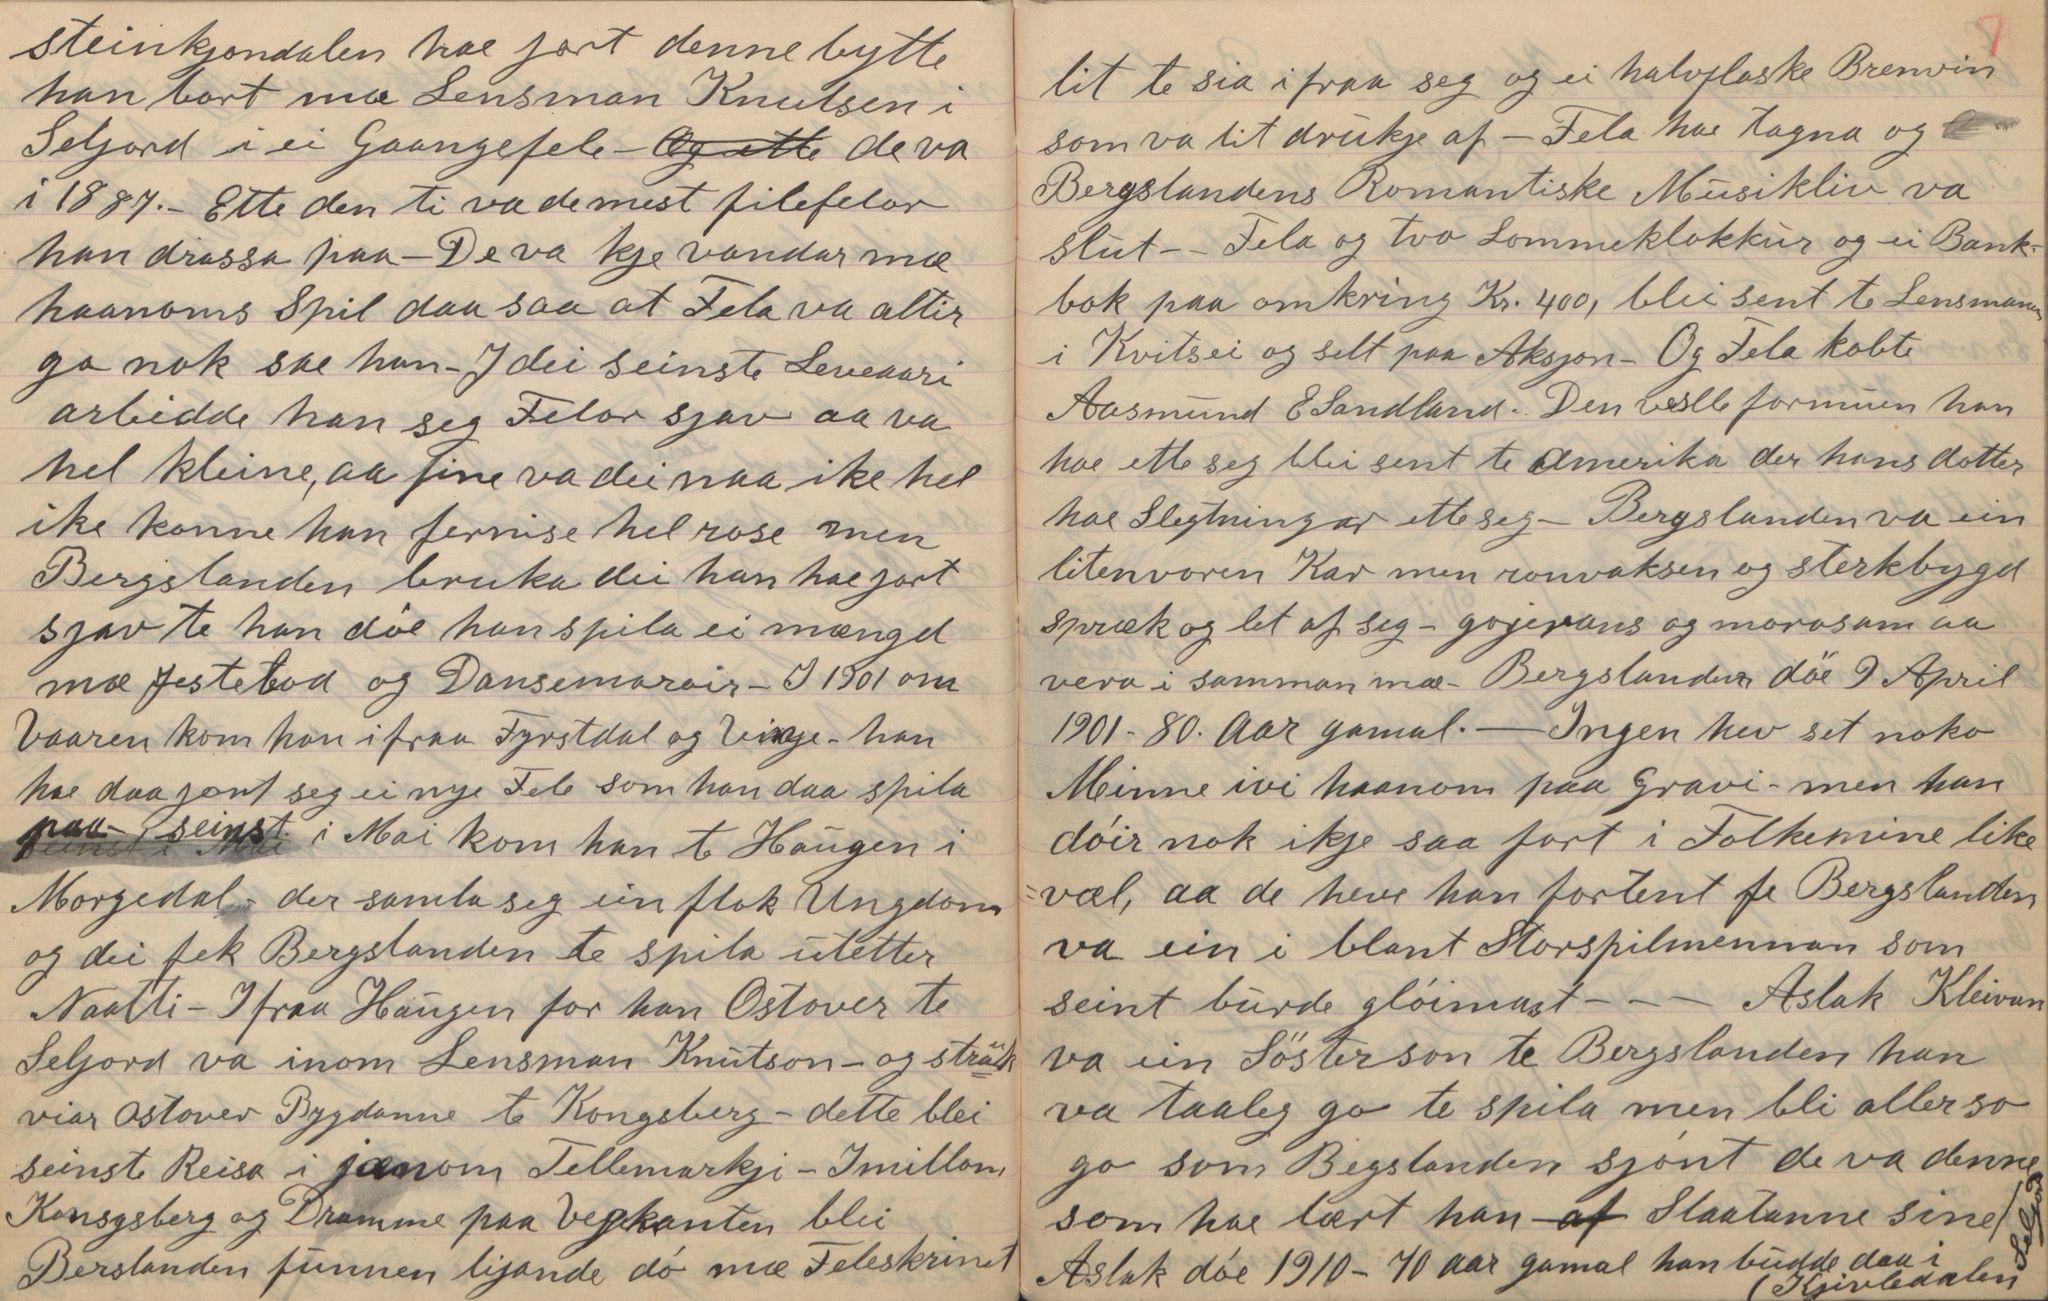 steinkjondalen hae jort denne bytte
han bort mæ Lensman Knutsen i
Seljord i ei Gaangefele - Og ette de va
i 1887. - Ette den ti va de mest filefelor
han drassa paa - De va kje vandar mæ
haanoms Spil daa saa at Fela va altir
go nok sae han - I dei seinste Leveaari
arbeidde han seg Felor sjav aa va
hel kleine, aa fine va dei naa ike hel
ike konne han fernise hel rose men
Bergslanden bruka dei han hae jort
sjav te han döe han spila ei mængd
mæ Festebod og Dansemoroir - I 1901 om
Vaaren kom han ifraa Fyrstdal og Vinje - han
hae daa jort seg ei nye Fele som han daa spila
paa - seinst i Mai kom han te Haugen i
Morgedal - der samla seg ein flok Ungdom
og dei fek Bergslanden te spila utetter
Naatti - Ifraa Haugen for han Ostover te
Seljord va inom Lensman Knutson - og sträk
viar ostover Bygdanne te Kongsberg - dette blei
seinste Reisa i jænom Tellemarkji - Imillom
Konsgsberg og Dramme paa Vegkanten blei
Berslanden funnen lijande dö mæ Feleskrinet
7
lit te sia ifraa seg og ei halvflaske Brenvin
som va lit drukje af - Fela hae tagna og
Bergslandens Romantiske Musikliv va
slut - - Fela og tvo Lommeklokkur og ei Bank-
bok paa omkring Kr. 400, blei sent te Lensmanen
i Kvitsei og selt paa Aksjon - Og Fela kobte
Aasmund E Sandland. Den vesle formuen han
hae ette seg blei sent te Amerika der hans dotter
hae Slegtningar ette seg - Bergslanden va ein
litenvoren Kar men ronvaksen og sterkbygd
spræk og let af seg - gojerans og morosam aa
vera i samman mæ - Bergslanden döe 9 April
1901 - 80. Aar gamal. - Ingen hev set noko
Minne ivi haanom paa Gravi - men han
döir nok ikje saa fort i Folkemine like
= væl, aa de heve han fortent fe Bergslanden
va ein i blant Storspilmennan som
seint burde glöimast - - - Aslak Kleivan
va ein Sösterson te Bergslanden han
va taaleg go te spila men bli aller so
go som Begslanden sjönt de va denne
som hae lært han af Slaatanne sine /
Aslak döe 1910 - 70 aar gamal han budde daa i
(Kjivledalen
Seljord